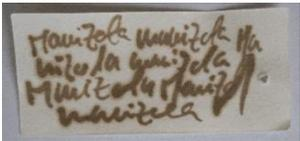 Manizela manizela Ma
nizela manizela
Manizela Manizel
manizela